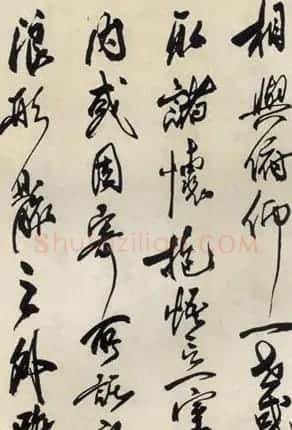 相與俯仰一世或
取諸懷抱悟言一室
內或因寄所託
浪形骸之外雖
Shufaziliao.COM